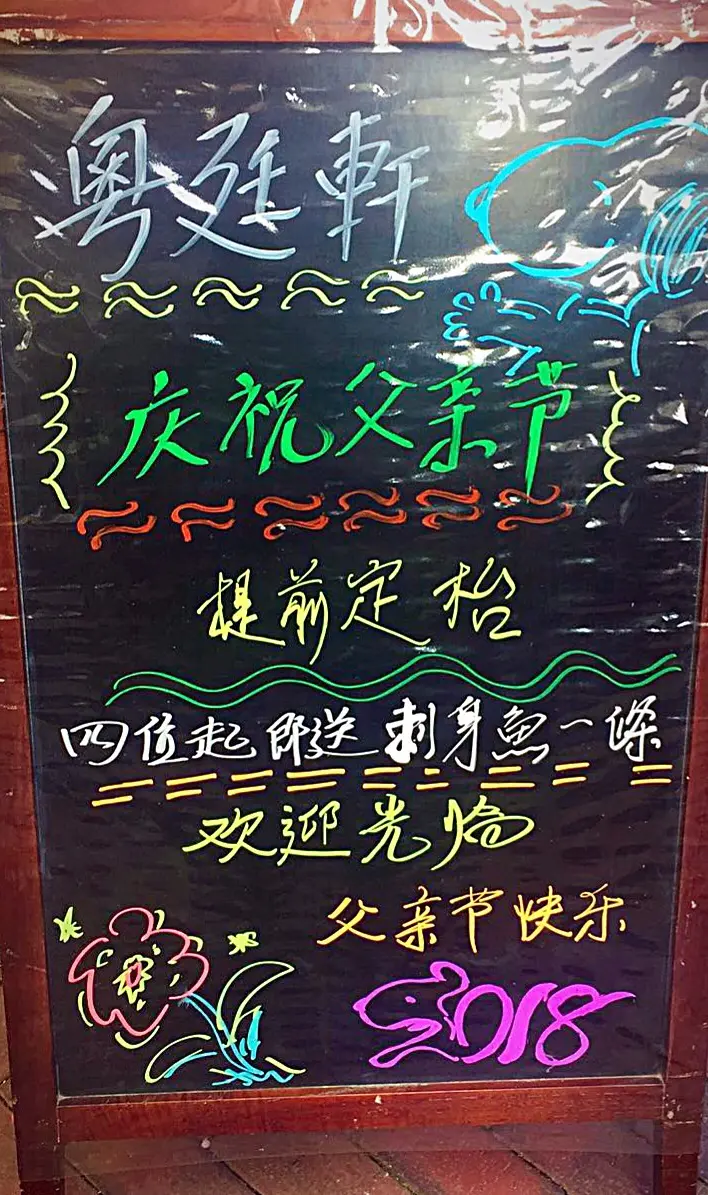 粤廷軒
庆祝父亲节
提前定枱
四位起即送刺身魚一條
欢迎光临
父亲节快乐
2018